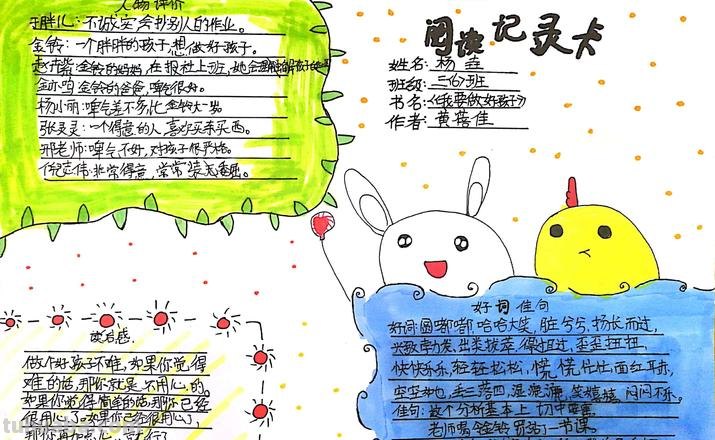 人物评价
于胖儿:不诚实会抄别人的作业。
金铃:一个胖胖的孩子,想做好孩子。
金铃的妈妈,在报社上班,她会
金亦鸣:金铃的爸爸,脾气很好。
杨小丽:脾气差不多,比金铃大一岁
张灵灵:一个得意的人,喜欢买东买西。
邢老师:脾气不好,对孩子很严格。
倪志伟:非常得意,常常装无委屈。
阅读记录卡
姓名:杨垚
班级:三(6)班
书名:《我要做好孩子》
作者:黄蓓佳
读后感
做个好孩子不难,如果你觉得
难的话,那你就是不用心的。
如果你觉得简单的话,那你已经
很用心了。如果你已经很用心了,
那你再加点心,
好词佳句
好词:圆嘟嘟,哈哈大笑,脏兮兮,扬长而过,
出类拔萃,得过且过,歪歪扭扭,
快快乐乐,轻轻松松,慌慌忙忙,面红耳赤,
空空如也,丢三落四,湿漉漉,笑嘻嘻,闷闷不乐。
佳句:这个分析基本上切中要害。
老师喝令金铃罚站一节课。